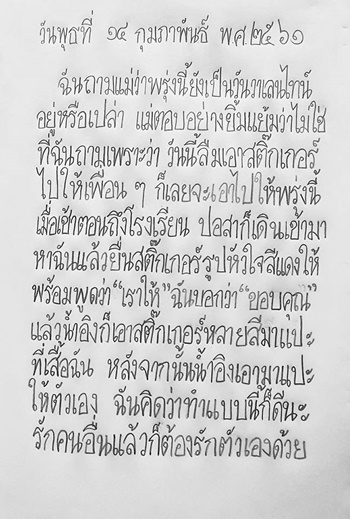 วันพุธที่ ๑๔ กุมภาพันธ์ พ.ศ.๒๕๖๑
ฉันถามแม่ว่าพรุ่งนี้ยังเป็นวันวาเลนไทน์
อยู่หรือเปล่า แม่ตอบอย่างยิ้มแย้มว่าไม่ใช่
ที่ฉันถามเพราะว่า วันนี้ลืมเอาสติ๊กเกอร์
ไปให้เพื่อน ๆ ก็เลยจะเอาไปให้พรุ่งนี้
เมื่อเช้าตอนถึงโรงเรียน ปอสาก็เดินเข้ามา
หาฉันแล้วยื่นสติ๊กเกอร์รูปหัวใจสีแดงให้
พร้อมพูดว่า“เราให้”ฉันบอกว่า“ขอบคุณ”
แล้วน้ำอิงก็เอาสติ๊กเกอร์หลายสีมาแปะ
ที่เสื้อฉัน หลังจากนั้นน้ำอิงเอามาแปะ
ให้ตัวเอง ฉันคิดว่าทำแบบนี้ก็ดีนะ
รักคนอื่นแล้วก็ต้องรักตัวเองด้วย